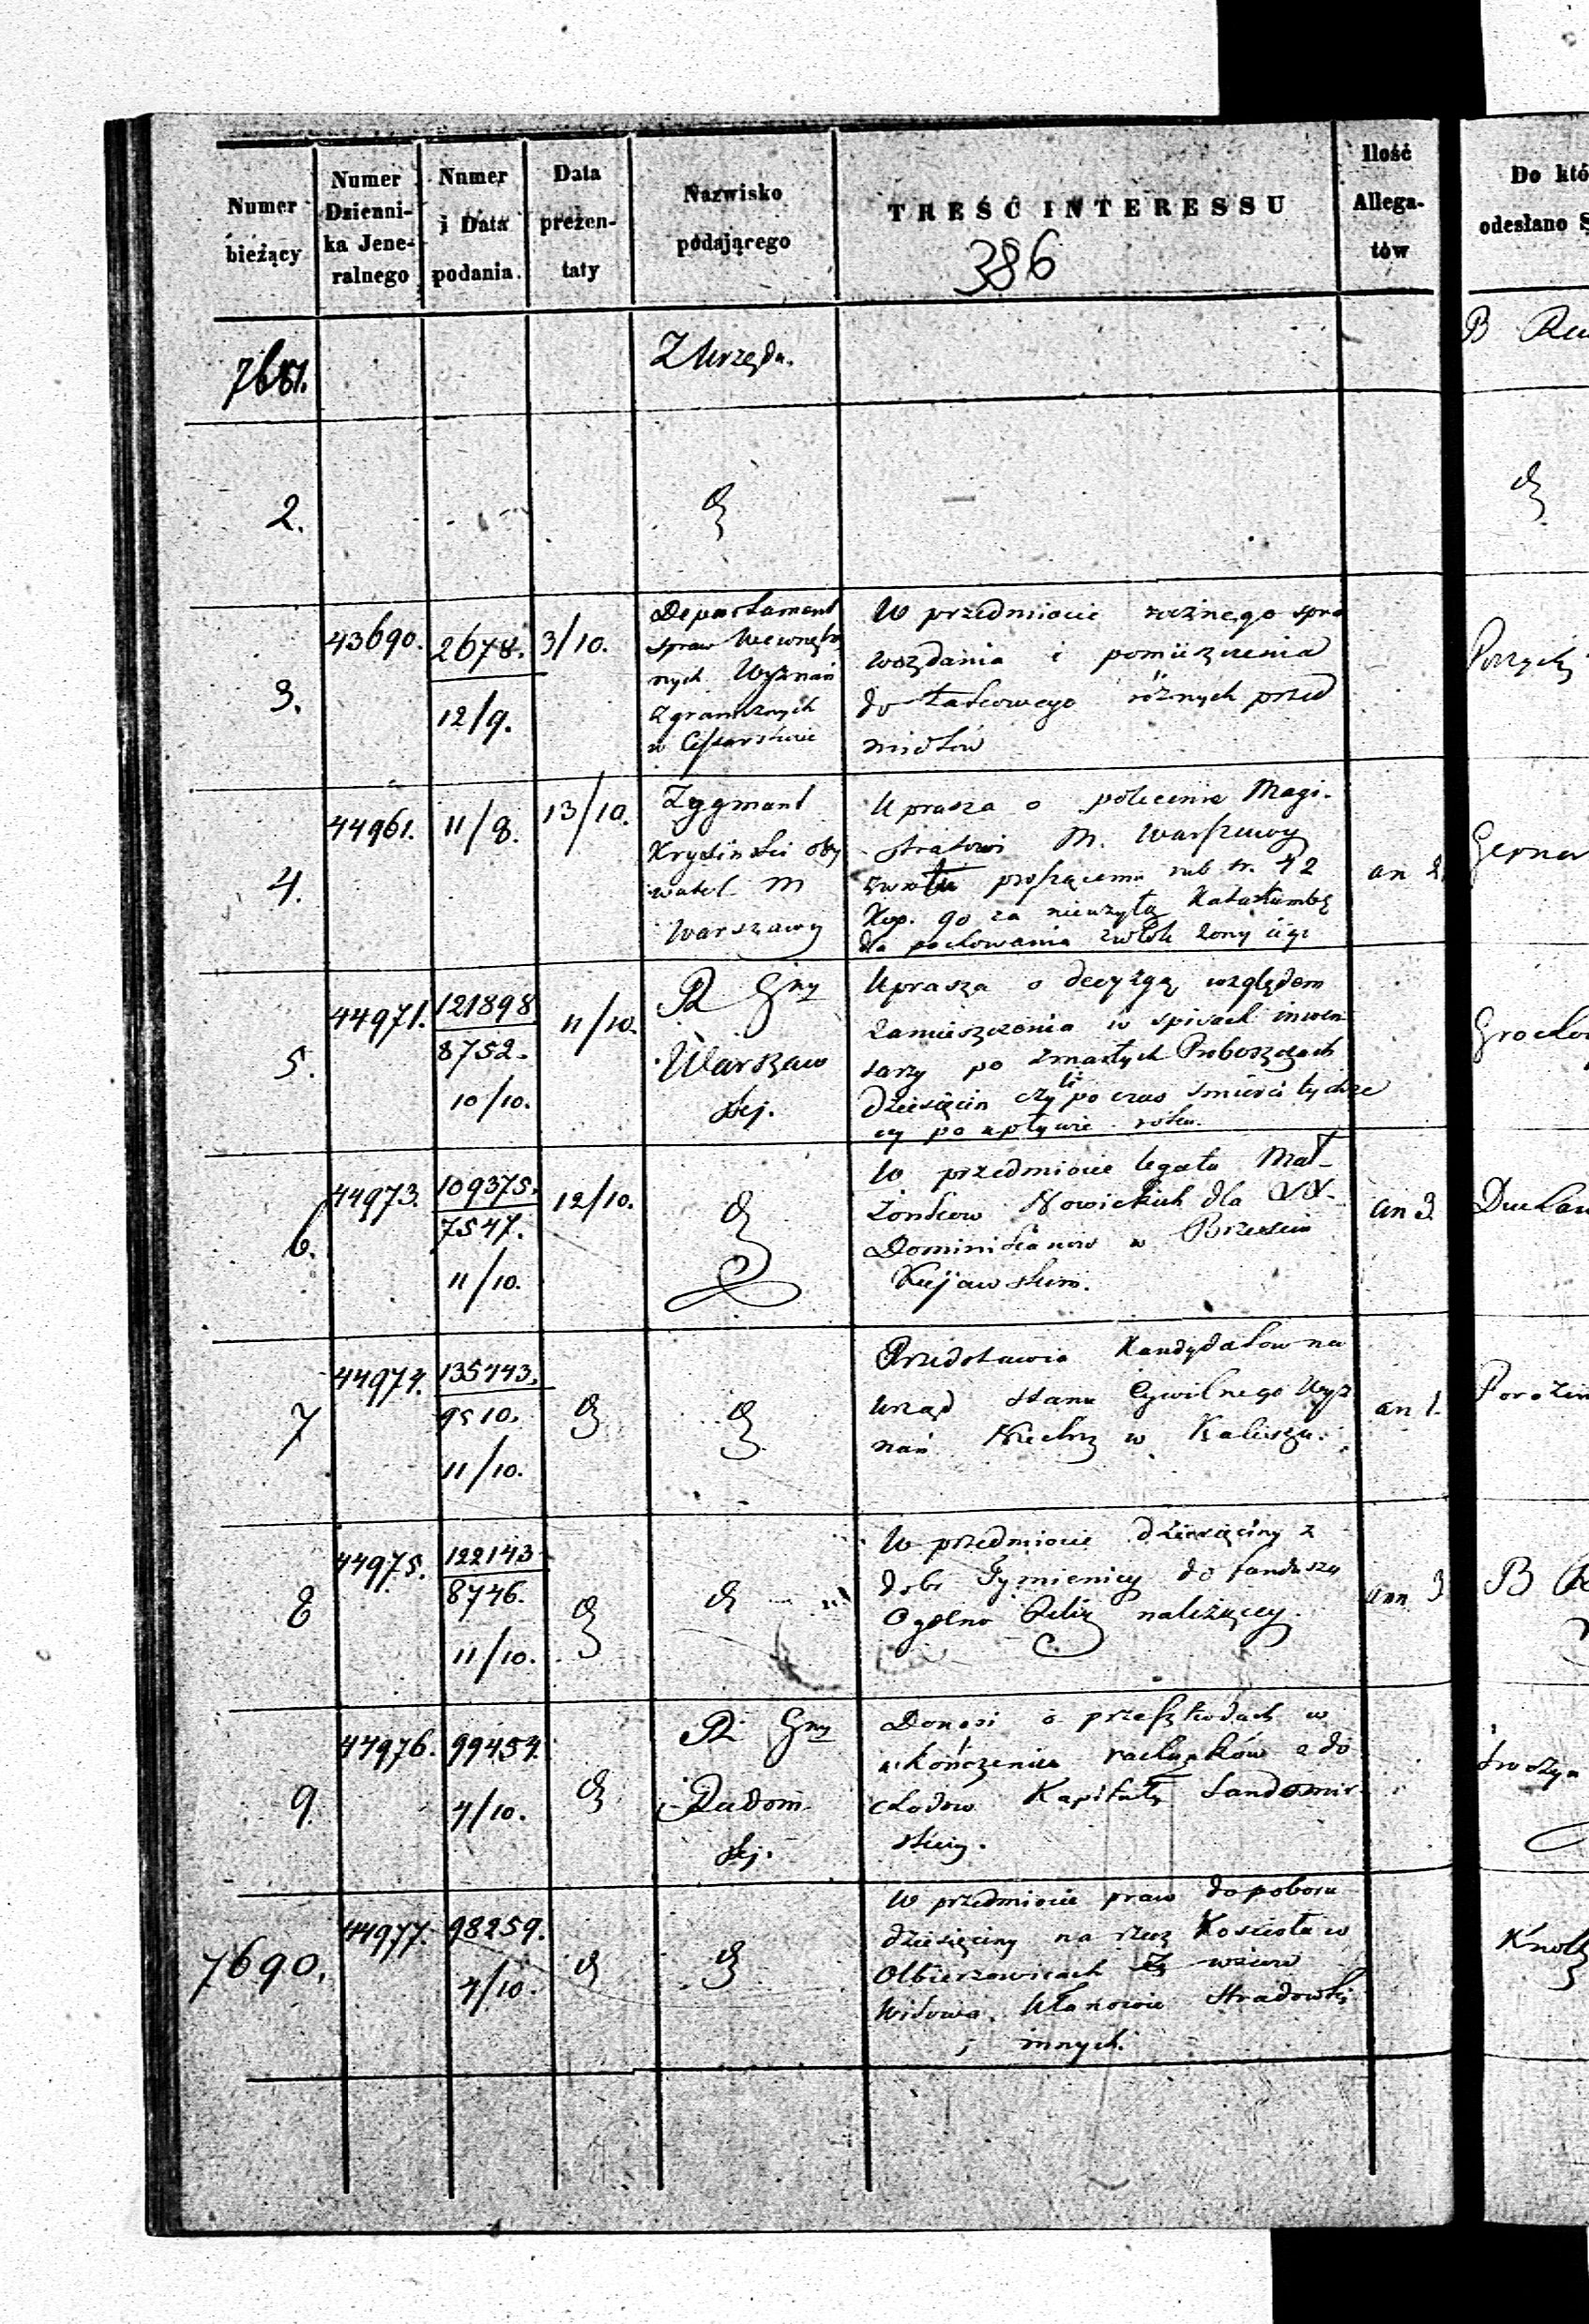 Numer bieżący
Numer Dzienni-ka Jene-ralnego
Numer i Data podania.
Data prezen-taty
Nazwisko podającego
TREŚĆ INTERESSU
386
Ilość Allega-tów
Do któ
odesłano S
7681.
Z Urzędu.
B
2.
3.
43690.
2678.
12/9.
3/10.
Departament
Spraw Wewnętrz
nych Wyznań
Zgranicznych
w Cesarstwie
W przedmiocie rocznego spra
wozdania i pomieszczenia
do takowego różnych przed
miotów
4.
44961.
11/8.
13/10.
Zygmunt
Krysiński oby
watel m
Warszawy
Uprasza o polecenie Magi-
stratowi M. Warszawy
zwrotu proszącemu rub sr. 42
Kop. 90 za nieużytą Katakumbę
dla pochowania zwłok żony
an 2.
5.
44971.
121898
8752.
10/10.
11/10.
R Gny
Warszaw
skij.
Uprasza o decyzyą względem
zamieszczenia w spisach inwen
tarzy po zmarłych Proboszczach
dziesięcin czyli po czas śmierci tychże
czy po upływie roku.
6.
44973.
109375.
7547.
11/10.
12/10.
W przedmiocie legatu Mał-
żonków Nowickich dla XX.
Dominikanów w Brześciu
Kujawskim.
an 3.
7
44974.
135443.
9510.
11/10.
Przedstawia Kandydatów na
Urząd Stanu Cywilnego Wyz
nań Niechrz w Kaliszu.
an 1.
8
44975.
122143
8746.
11/10.
W przedmiocie dziesięciny z
dobr Tymienicy do funduszu
Ogólno Relig należącey.
ann 3
B
9.
44976.
99454.
4/10.
R Gny
Radom
skij.
Donosi o przeszkodach w
ukończeniu rachunków z do
chodów Kapituły Sandomir
skiey.
7690.
44977.
98259.
4/10.
W przedmiocie praw do poboru
dziesięciny na rzecz Kościoła w
Olbierzowicach z wsiów
Witowa, Ułanowic Stradowski
i innych.